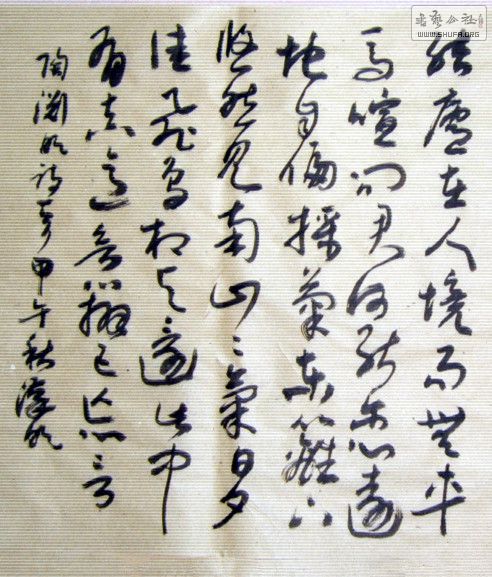 書藝公社
WWW.SHUFA.ORG
结廬在人境而無車
马喧问君何能尔心遠
地自偏採菊東籬下
悠然见南山〻氣日夕
佳飛鸟相与還此中
有真意欲辨已忘言
陶渊明诗首甲午秋